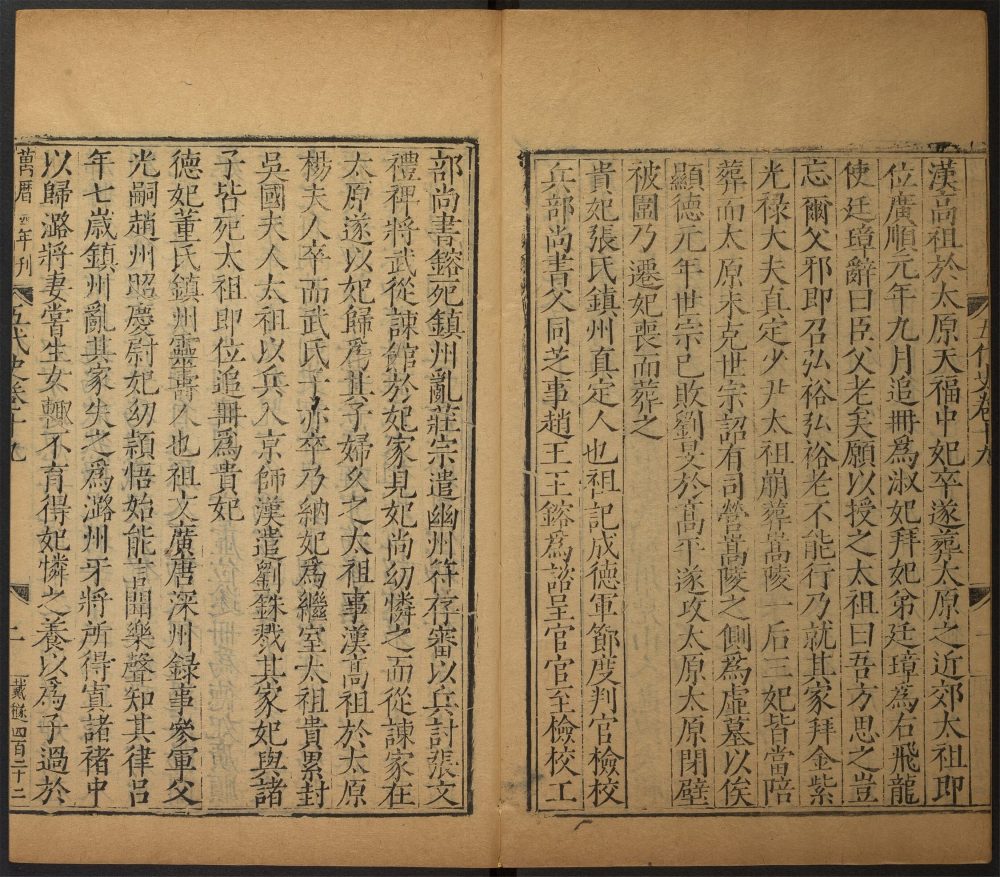 漢高祖於太原天福中妃卒遂葬太原之近郊太祖即
位廣順元年九月追冊爲淑妃拜妃弟廷璋爲右飛龍
使廷璋辭曰臣父老矣願以授之太祖曰吾方思之豈
忘爾父邪即召弘裕弘裕老不能行乃就其家拜金紫
光祿大夫真定少尹太祖崩葬嵩陵一后三妃皆當陪
葬而太原未克世宗詔有司營嵩陵之側爲虛墓以俟
顯德元年世宗已敗劉旻於高平遂攻太原太原閉壁
被圍乃遷妃喪而葬之
貴妃張氏鎮州真定人也祖記成德軍節度判官檢校
兵部尚書父同芝事趙王王鎔爲諮呈官官至檢校工
五代史卷十九
一
部尚書鎔死鎮州亂莊宗遣幽州符存審以兵討張文
禮裨將武從諫館於妃家見妃尚幼憐之而從諫家在
太原遂以妃歸爲其子婦久之太祖事漢高祖於太原
楊夫人卒而武氏子亦卒乃納妃爲繼室太祖貴累封
吳國夫人太祖以兵入京師漢遣劉銖戮其家妃與諸
子皆死太祖即位追冊爲貴妃
德妃董氏鎮州靈壽人也祖文廣唐深州錄事參軍父
光嗣趙州昭慶尉妃幼穎悟始能言聞樂聲知其律呂
年七歲鎮州亂其家失之爲潞州牙將所得寘諸褚中
以歸潞將妻嘗生女輒不育得妃憐之養以爲子過於
萬曆四年刊
五代史卷十九
二
戴㒸四百二十二